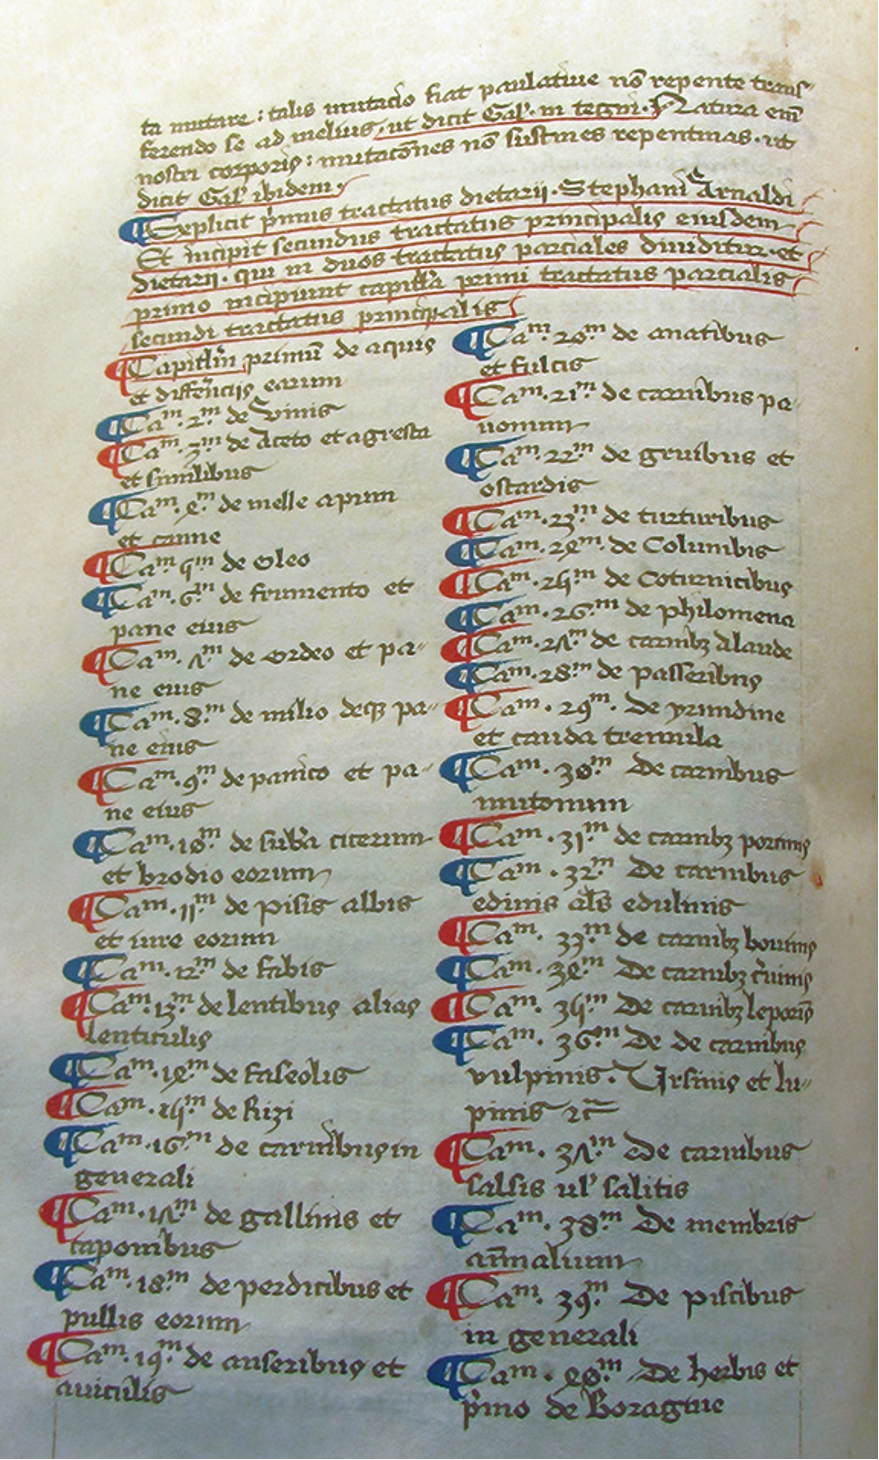 ta mutare : talis mutacio fiat paulatiue nõ repente trans-
ferendo se ad melius, ut dicit Gal'. in tegni. Natura em̃
nostri corporis : mutacõnes nõ sustines repentinas. ut
dicit Gal' ibidem.
¶ Explicit p̃mus tractatus dietarij. Stephani Arnaldi
Et incipit secundus tractatus principalis eiusdem
dietarij. qui in duos tractatus parciales diuiditur. et
primo incipiunt capitl'a primi tractatus parcialis
secundi tractatus principalis
¶ Capitl'm primũ de aquis
et differ̃encijs earum
¶ Cam. 2m. de Vinis
¶ Cam. 3m. de Aceto et agresta
et similibus
¶ Cam. 4m. de melle apium
et canne
¶ Cam. 5m. de Oleo
¶ Cam. 6m. de frumento et
pane eius
¶ Cam. 7m. de Ordeo et pa-
ne eius
¶ Cam. 8.m de milio deqꝫ pa-
ne eius
¶ Cam. 9m. de panico et pa-
ne eius
¶ Cam. 10m. de cicerum
et brodio eorum
¶ Cam. 11m. de pisis albis
et iure eorum
¶ Cam. 12m. de fabis
¶ Cam. 13m. de lentibus alias
lenticulis
¶ Cam. 14m. de faseolis
¶ Cam. 15m. de Rizi
¶ Cam. 16m. de carnibus in
generali
¶ Cam. 17m. de gallinis et
caponibus
¶ Cam. 18m. de perdicibus et
pullis eorum
¶ Cam. 19m. de anseribus et
auiculis
¶ Cam. 20m. de anatibus
et fulcis
¶ Cam. 21m. de carnibus pa-
uonum
¶ Cam. 22m. de gruibus et
ostardis
¶ Cam. 23m. de turturibus
¶ Cam. 24m. de Columbis
¶ Cam. 25m. de Coturnicibus
¶ Cam. 26m. de philomena
¶ Cam. 27m. de carnibꝫ Alaude
¶ Cam. 28m. de passeribus
¶ Cam. 29m. De yrundine
et cauda tremula
¶ Cam. 30m. De carnibus
mutonum
¶ Cam. 31m. de carnibꝫ porcinis
¶ Cam. 32m. De carnibus
edinis al's edulinis
¶ Cam. 33m. de carnibꝫ bouinis
¶ Cam. 34m. De carnibꝫ c̃uinis
¶ Cam. 35m. De carnibꝫ leporis
¶ Cam. 36m. De de carnibus
vulpinis. Vrsinis et lu-
pinis ⁊c̃
¶ Cam. 37m. de carnibus
salsis ul' salitis
¶ Cam. 38m. De membris
animalium
¶ Cam. 39m. De piscibus
in generali
¶ Cam. 40m. De herbis et
p̃mo de Boragine